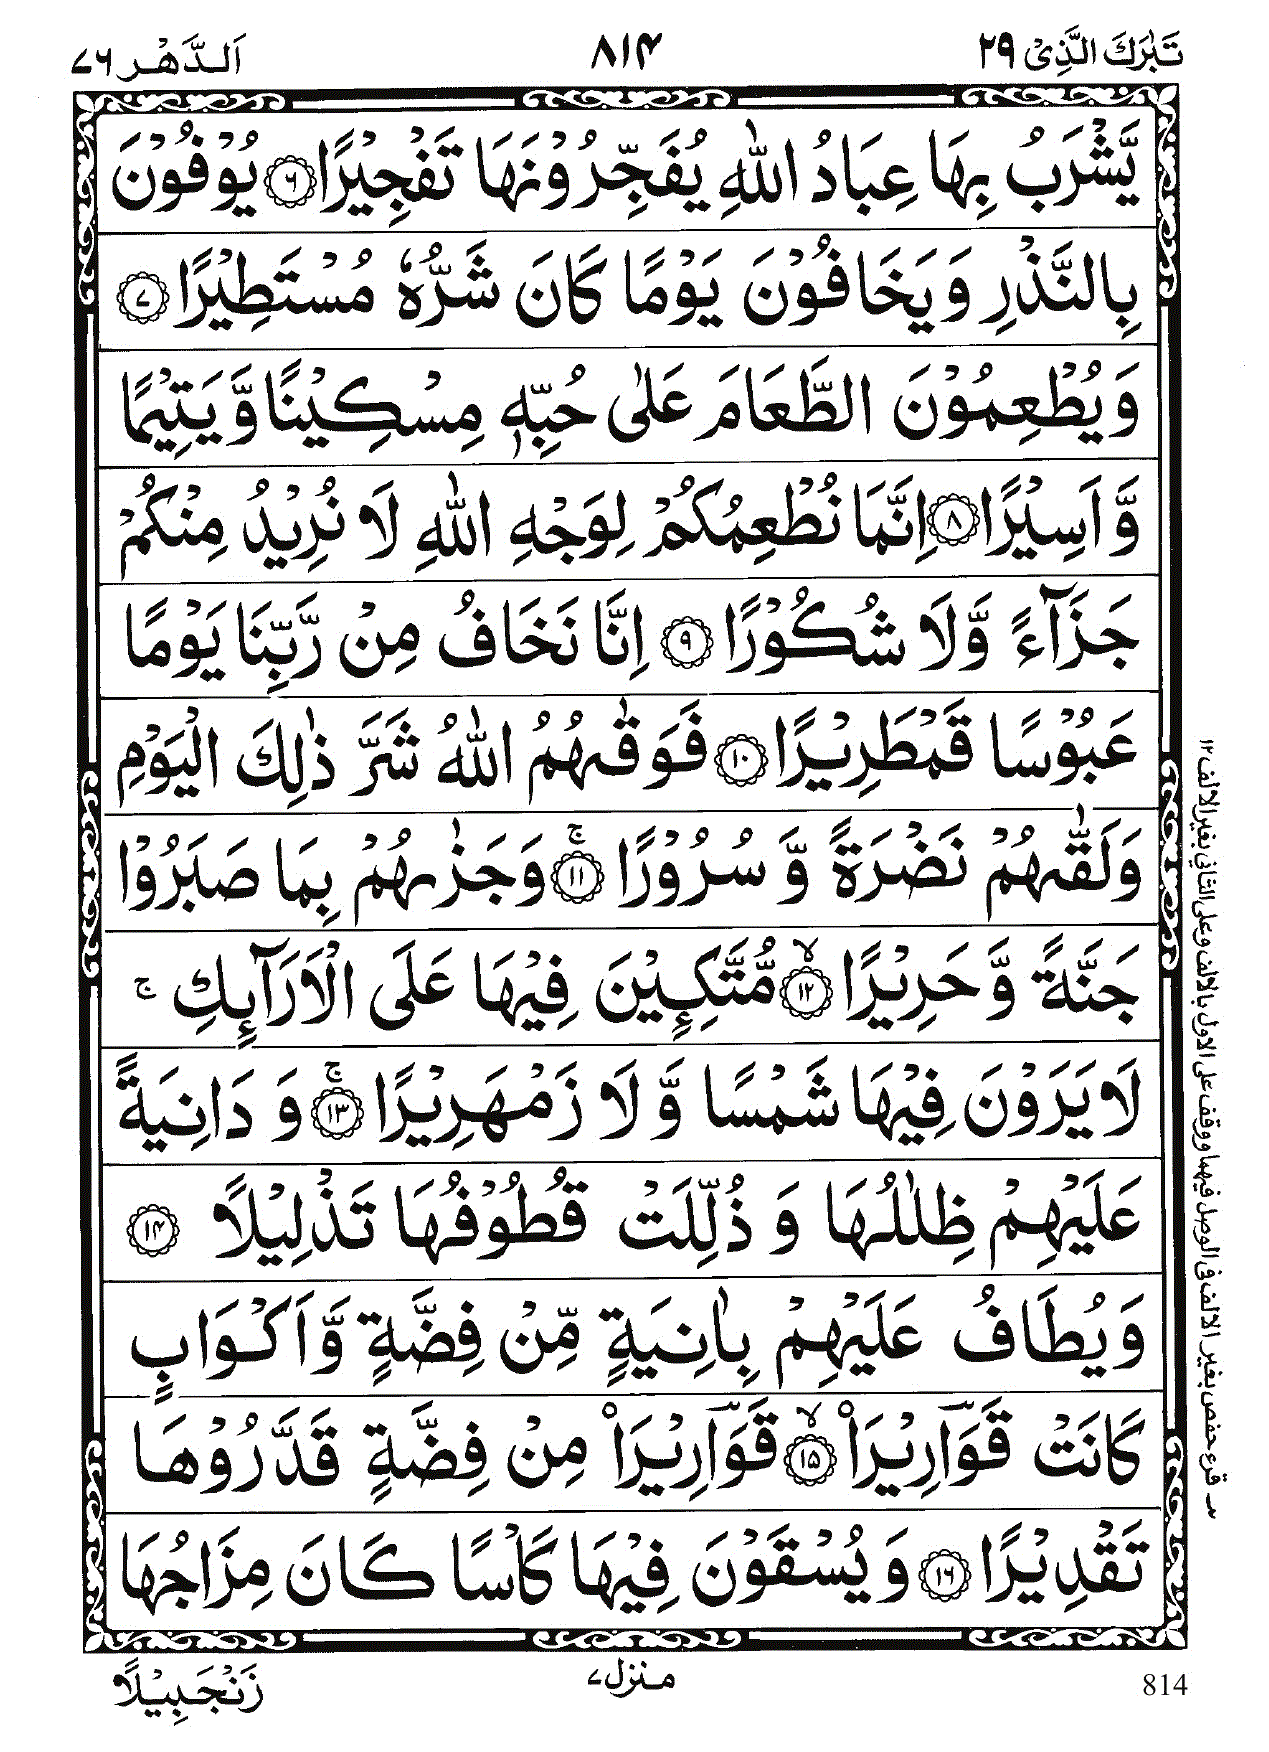 تَبٰرَكَ الَّذِىْ ٢٩
٨١٤
اَلدَّهْر ٧٦
يَّشْرَبُ بِهَا عِبَادُ اللّٰهِ يُفَجِّرُوْنَهَا تَفْجِيْرًا ۝٦ يُوْفُوْنَ
بِالنَّذْرِ وَيَخَافُوْنَ يَوْمًا كَانَ شَرُّهٗ مُسْتَطِيْرًا ۝٧
وَيُطْعِمُوْنَ الطَّعَامَ عَلٰى حُبِّهٖ مِسْكِيْنًا وَّيَتِيْمًا
وَّاَسِيْرًا ۝٨ اِنَّمَا نُطْعِمُكُمْ لِوَجْهِ اللّٰهِ لَا نُرِيْدُ مِنْكُمْ
جَزَآءً وَّلَا شُكُوْرًا ۝٩ اِنَّا نَخَافُ مِنْ رَّبِّنَا يَوْمًا
عَبُوْسًا قَمْطَرِيْرًا ۝١٠ فَوَقٰىهُمُ اللّٰهُ شَرَّ ذٰلِكَ الْيَوْمِ
وَلَقّٰىهُمْ نَضْرَةً وَّسُرُوْرًا ۝١١ۚ وَجَزٰىهُمْ بِمَا صَبَرُوْا
جَنَّةً وَّحَرِيْرًا ۝١٢ۙ مُّتَّكِـِٕيْنَ فِيْهَا عَلَى الْاَرَآىِٕكِ ۚ
لَا يَرَوْنَ فِيْهَا شَمْسًا وَّلَا زَمْهَرِيْرًا ۝١٣ۚ وَدَانِيَةً
عَلَيْهِمْ ظِلٰلُهَا وَذُلِّلَتْ قُطُوْفُهَا تَذْلِيْلًا ۝١٤
وَيُطَافُ عَلَيْهِمْ بِاٰنِيَةٍ مِّنْ فِضَّةٍ وَّاَكْوَابٍ
كَانَتْ قَوَارِيْرَا۠ ۝١٥ۙ قَوَارِيْرَا۠ مِنْ فِضَّةٍ قَدَّرُوْهَا
تَقْدِيْرًا ۝١٦ وَيُسْقَوْنَ فِيْهَا كَاْسًا كَانَ مِزَاجُهَا
قرء حفص بغير الالف فى الوصل فيهما ووقف على الاول بالالف وعلى الثانى بغير الالف ١٢
زَنْجَبِيْلًا
منزل ٧
814